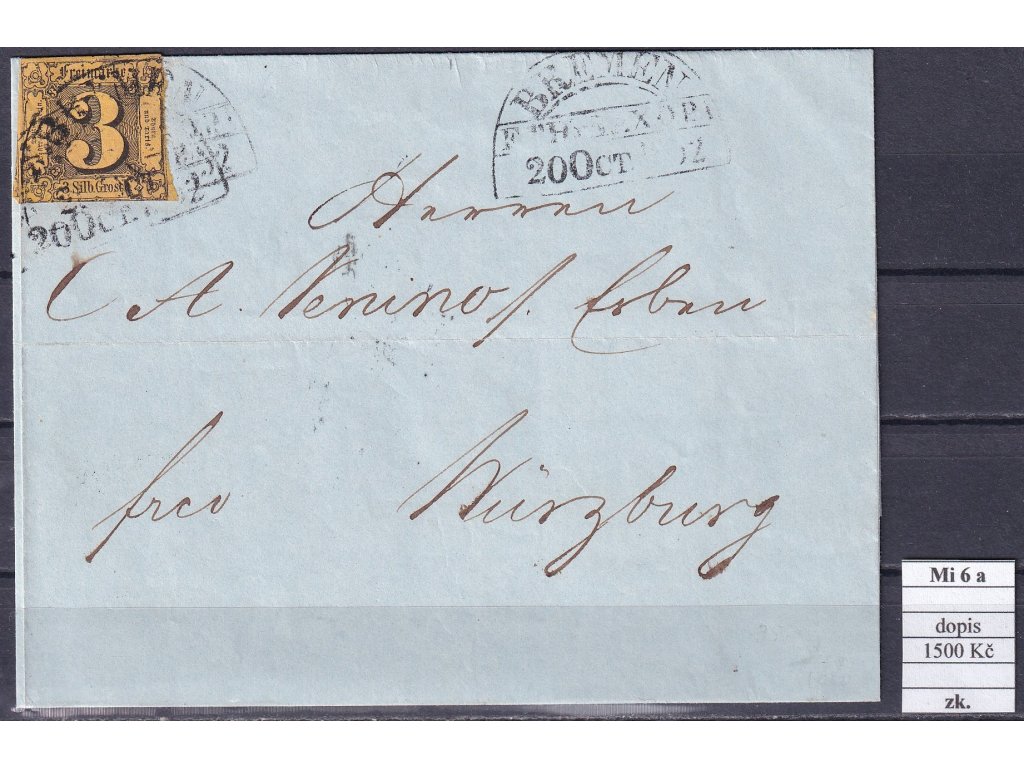 Freimarke
3
3 Silb. Grosch.
20 OCT
BREMEN
20 OCT
Herren
C A. Venino s/. Erben
frco Würzburg
Mi 6 a
dopis
1500 Kč
zk.